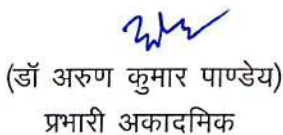 (डॉ अरुण कुमार पाण्डेय)
प्रभारी अकादमिक